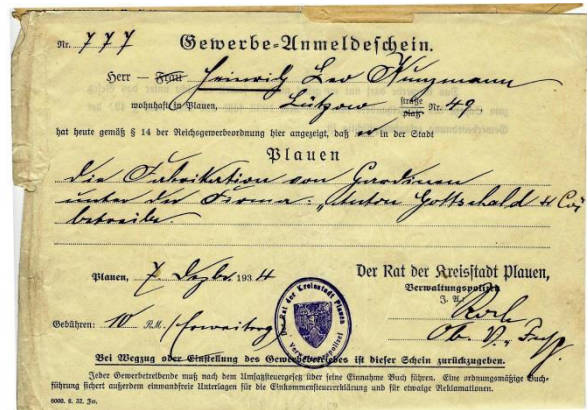 Nr. 777 Gewerbe-Anmeldeschein.
Herr — Frau Heinrich Leo Kunzmann
wohnhaft in Plauen, Lützow straße platz Nr. 49
hat heute gemäß § 14 der Reichsgewerbeordnung hier angezeigt, daß er in der Stadt
Plauen
die Fabrikation von Gardinen
unter der Firma: „Anton Gottschald & Co"
betreibe.
Plauen, 7. Dezbr. 1934
Der Rat der Kreisstadt Plauen,
Verwaltungspolizei
J. A.
Gebühren: 10 R.M.
Ob. V.
Der Rat der Kreisstadt Plauen
Verwaltungspolizei
Bei Wegzug oder Einstellung des Gewerbebetriebes ist dieser Schein zurückzugeben.
Jeder Gewerbetreibende muß nach dem Umsatzsteuergesetz über seine Einnahme Buch führen. Eine ordnungsmäßige Buch-
führung sichert außerdem einwandfreie Unterlagen für die Einkommensteuererklärung und für etwaige Reklamationen.
6000. 6. 32. Jw.